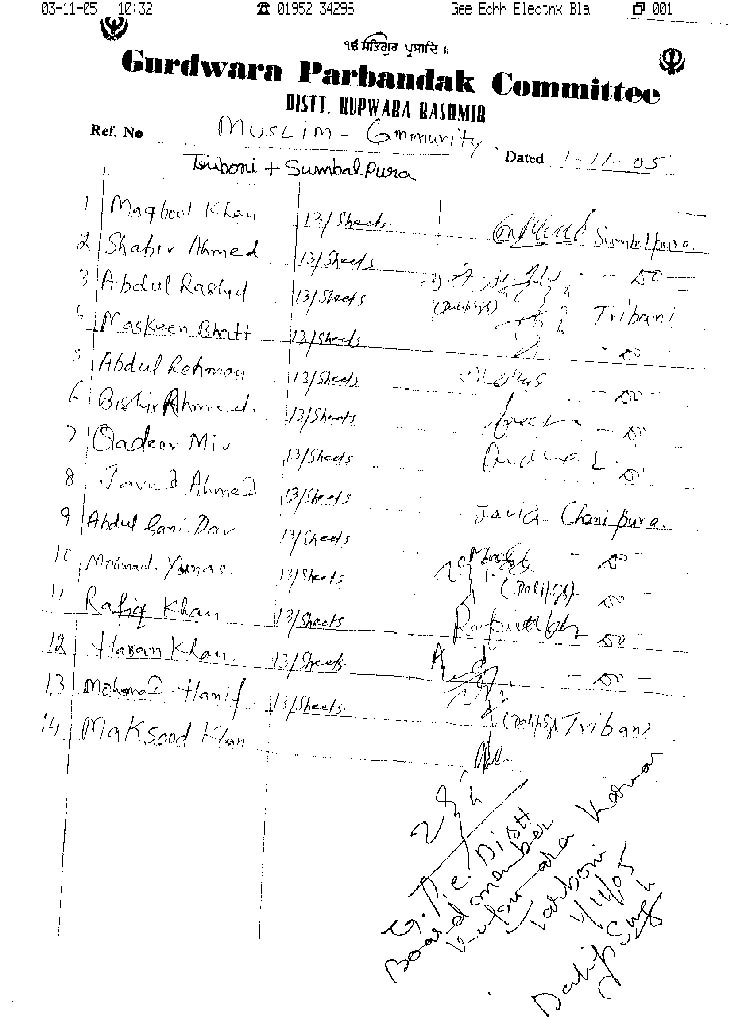 03-11-05 10:32 ☎ 01952 34295 Gee Echh Electnx Bla 001
ੴ ਸਤਿਗੁਰ ਪ੍ਰਸਾਦਿ ॥
Gurdwara Parbandak Committee
DISTT. KUPWARA KASHMIR
Ref. No Muslim - Community. Dated 1-11-05
Truboni + Sumbalpura
1 Maqbool Khan 13/Sheets Simbalpura.
2 Shabir Ahmed 13/Sheets - do -
3 Abdul Rashid 13/Sheets (Dalipsgs) Tribani
4 Maskeen Bhatt 13/Sheets - do
5 Abdul Rehman 13/Sheets - do -
6 Bishir Ahmed. 13/Sheets - do
7 Qadeer Mir 13/Sheets - do
8 Javid Ahmed 13/Sheets Javid Chanipura.
9 Abdul Gani Dar 13/Sheets - do
10 Mohmad. Yunas. 13/Sheets (Dalipsgs) - do
11 Rafiq Khan 13/Sheets - do
12 Hasan Khan. 13/Sheets - do -
13 Mohomad Hanif 13/Sheets (Dalipsgs) Tribani
14. Maksood Khan
G.P.C. Distt
Board member
Kupwara Kashmir
Tarboni
1/11/05
Dalip Singh